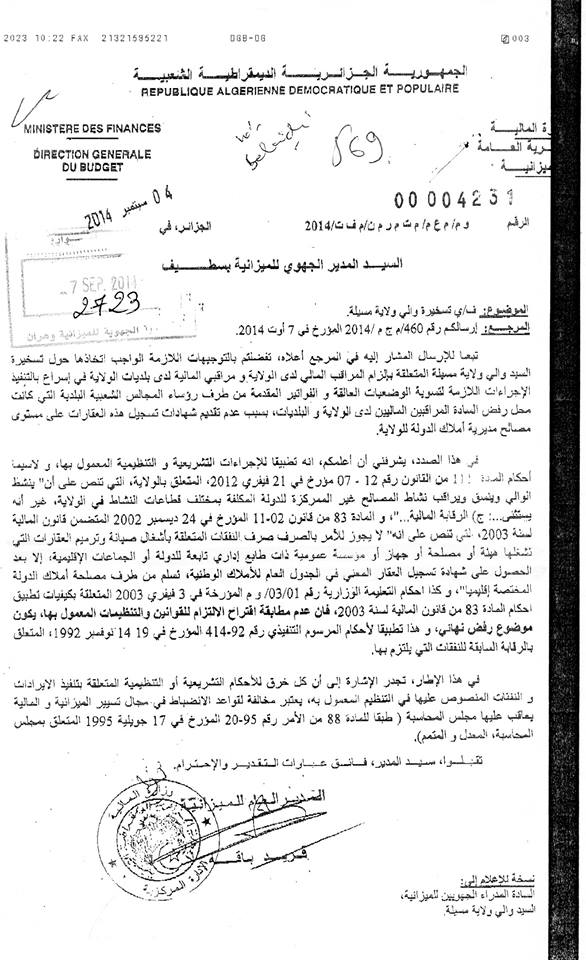 2023 10:22 FAX 21321595221 DGB-DG 003
الجمهورية الجزائرية الديمقراطية الشعبية
REPUBLIQUE ALGERIENNE DEMOCRATIQUE ET POPULAIRE
MINISTERE DES FINANCES
DIRECTION GENERALE
DU BUDGET
ة المالية
رية العامة
ميزانية
569
00004231
04 سبتمبر 2014
الرقم و م/ م ع م/ م ت م ر م ن/ م ف ت/2014
الجزائر، في
7 SEP. 2014
2723
الجهوية للميزانية وهران
السيد المدير الجهوي للميزانية بسطيف
الموضوع: ف/ي تسخيرة والي ولاية مسيلة.
المرجع: إرسالكم رقم 460/م ج م /2014 المؤرخ في 7 أوت 2014.
تبعا للإرسال المشار إليه في المرجع أعلاه، تفضلتم بالتوجيهات اللازمة الواجب اتخاذها حول تسخيرة
السيد والي ولاية مسيلة المتعلقة بإلزام المراقب المالي لدى الولاية و مراقبي المالية لدى بلديات الولاية في إسراع بالتنفيذ
الإجراءات اللازمة لتسوية الوضعيات العالقة و الفواتير المقدمة من طرف رؤساء المجالس الشعبية البلدية التي كانت
محل رفض السادة المراقبين الماليين لدى الولاية و البلديات، بسبب عدم تقديم شهادات تسجيل هذه العقارات على مستوى
مصالح مديرية أملاك الدولة للولاية.
في هذا الصدد، يشرفني أن أعلمكم، انه تطبيقا للإجراءات التشريعية و التنظيمية المعمول بها، و لاسيما
أحكام المادة 111 من القانون رقم 12 - 07 مؤرخ في 21 فيفري 2012، المتعلق بالولاية، التي تنص على أن" ينشط
الوالي وينسق ويراقب نشاط المصالح غير الممركزة للدولة المكلفة بمختلف قطاعات النشاط في الولاية، غير أنه
يستثنى...: ج) الرقابة المالية..."، و المادة 83 من قانون 02-11 المؤرخ في 24 ديسمبر 2002 المتضمن قانون المالية
لسنة 2003، التي تنص على انه" لا يجوز للآمر بالصرف صرف النفقات المتعلقة بأشغال صيانة وترميم العقارات التي
تشغلها هيئة أو مصلحة أو جهاز أو موسسة عمومية ذات طابع إداري تابعة للدولة أو الجماعات الإقليمية، إلا بعد
الحصول على شهادة تسجيل العقار المعني في الجدول العام للأملاك الوطنية، تسلم من طرف مصلحة أملاك الدولة
المختصة إقليميا"، و كذا احكام التعليمة الوزارية رقم 03/01/ و م المؤرخة في 3 فيفري 2003 المتعلقة بكيفيات تطبيق
احكام المادة 83 من قانون المالية لسنة 2003، فان عدم مطابقة اقتراح الالتزام للقوانين والتنظيمات المعمول بها، يكون
موضوع رفض نهائي، و هذا تطبيقا لأحكام المرسوم التنفيذي رقم 92-414 المؤرخ في 19 14 نوفمبر 1992، المتعلق
بالرقابة السابقة للنفقات التي يلتزم بها.
في هذا الإطار، تجدر الإشارة إلى أن كل خرق للأحكام التشريعية أو التنظيمية المتعلقة بتنفيذ الايرادات
و النفقات المنصوص عليها في التنظيم المعمول به، يعتبر مخالفة لقواعد الانضباط في مجال تسيير الميزانية و المالية
يعاقب عليها مجلس المحاسبة ( طبقا للمادة 88 من الأمر رقم 95-20 المؤرخ في 17 جويلية 1995 المتعلق بمجلس
المحاسبة، المعدل و المتمم).
تقبلوا، سيد المدير، فائق عبارات التقدير والإحترام.
المدير العام للميزانية
فريد باقة
وزارة المالية
الإدارة المركزية
نسخة للإعلام إلى:
السادة المدراء الجهويين للميزانية،
السيد والي ولاية مسيلة.